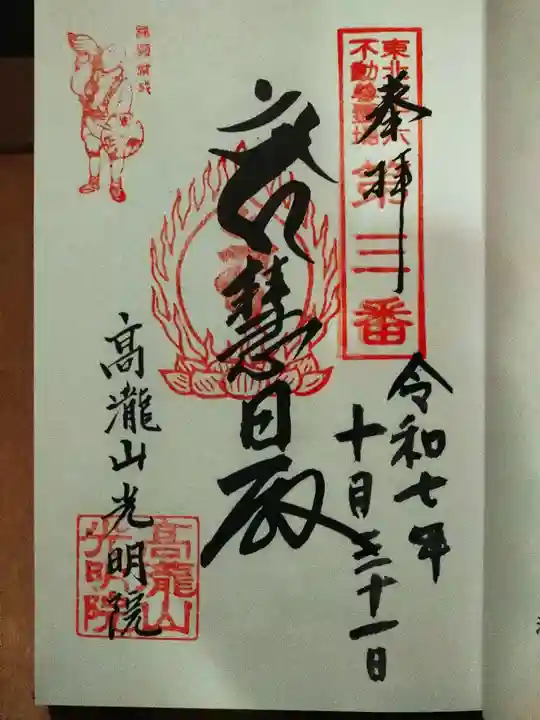 奉拝
東北三十六
不動尊霊場
第三番
令和七年
十月三十一日
慧日殿
高瀧山光明院
高瀧山
光明院